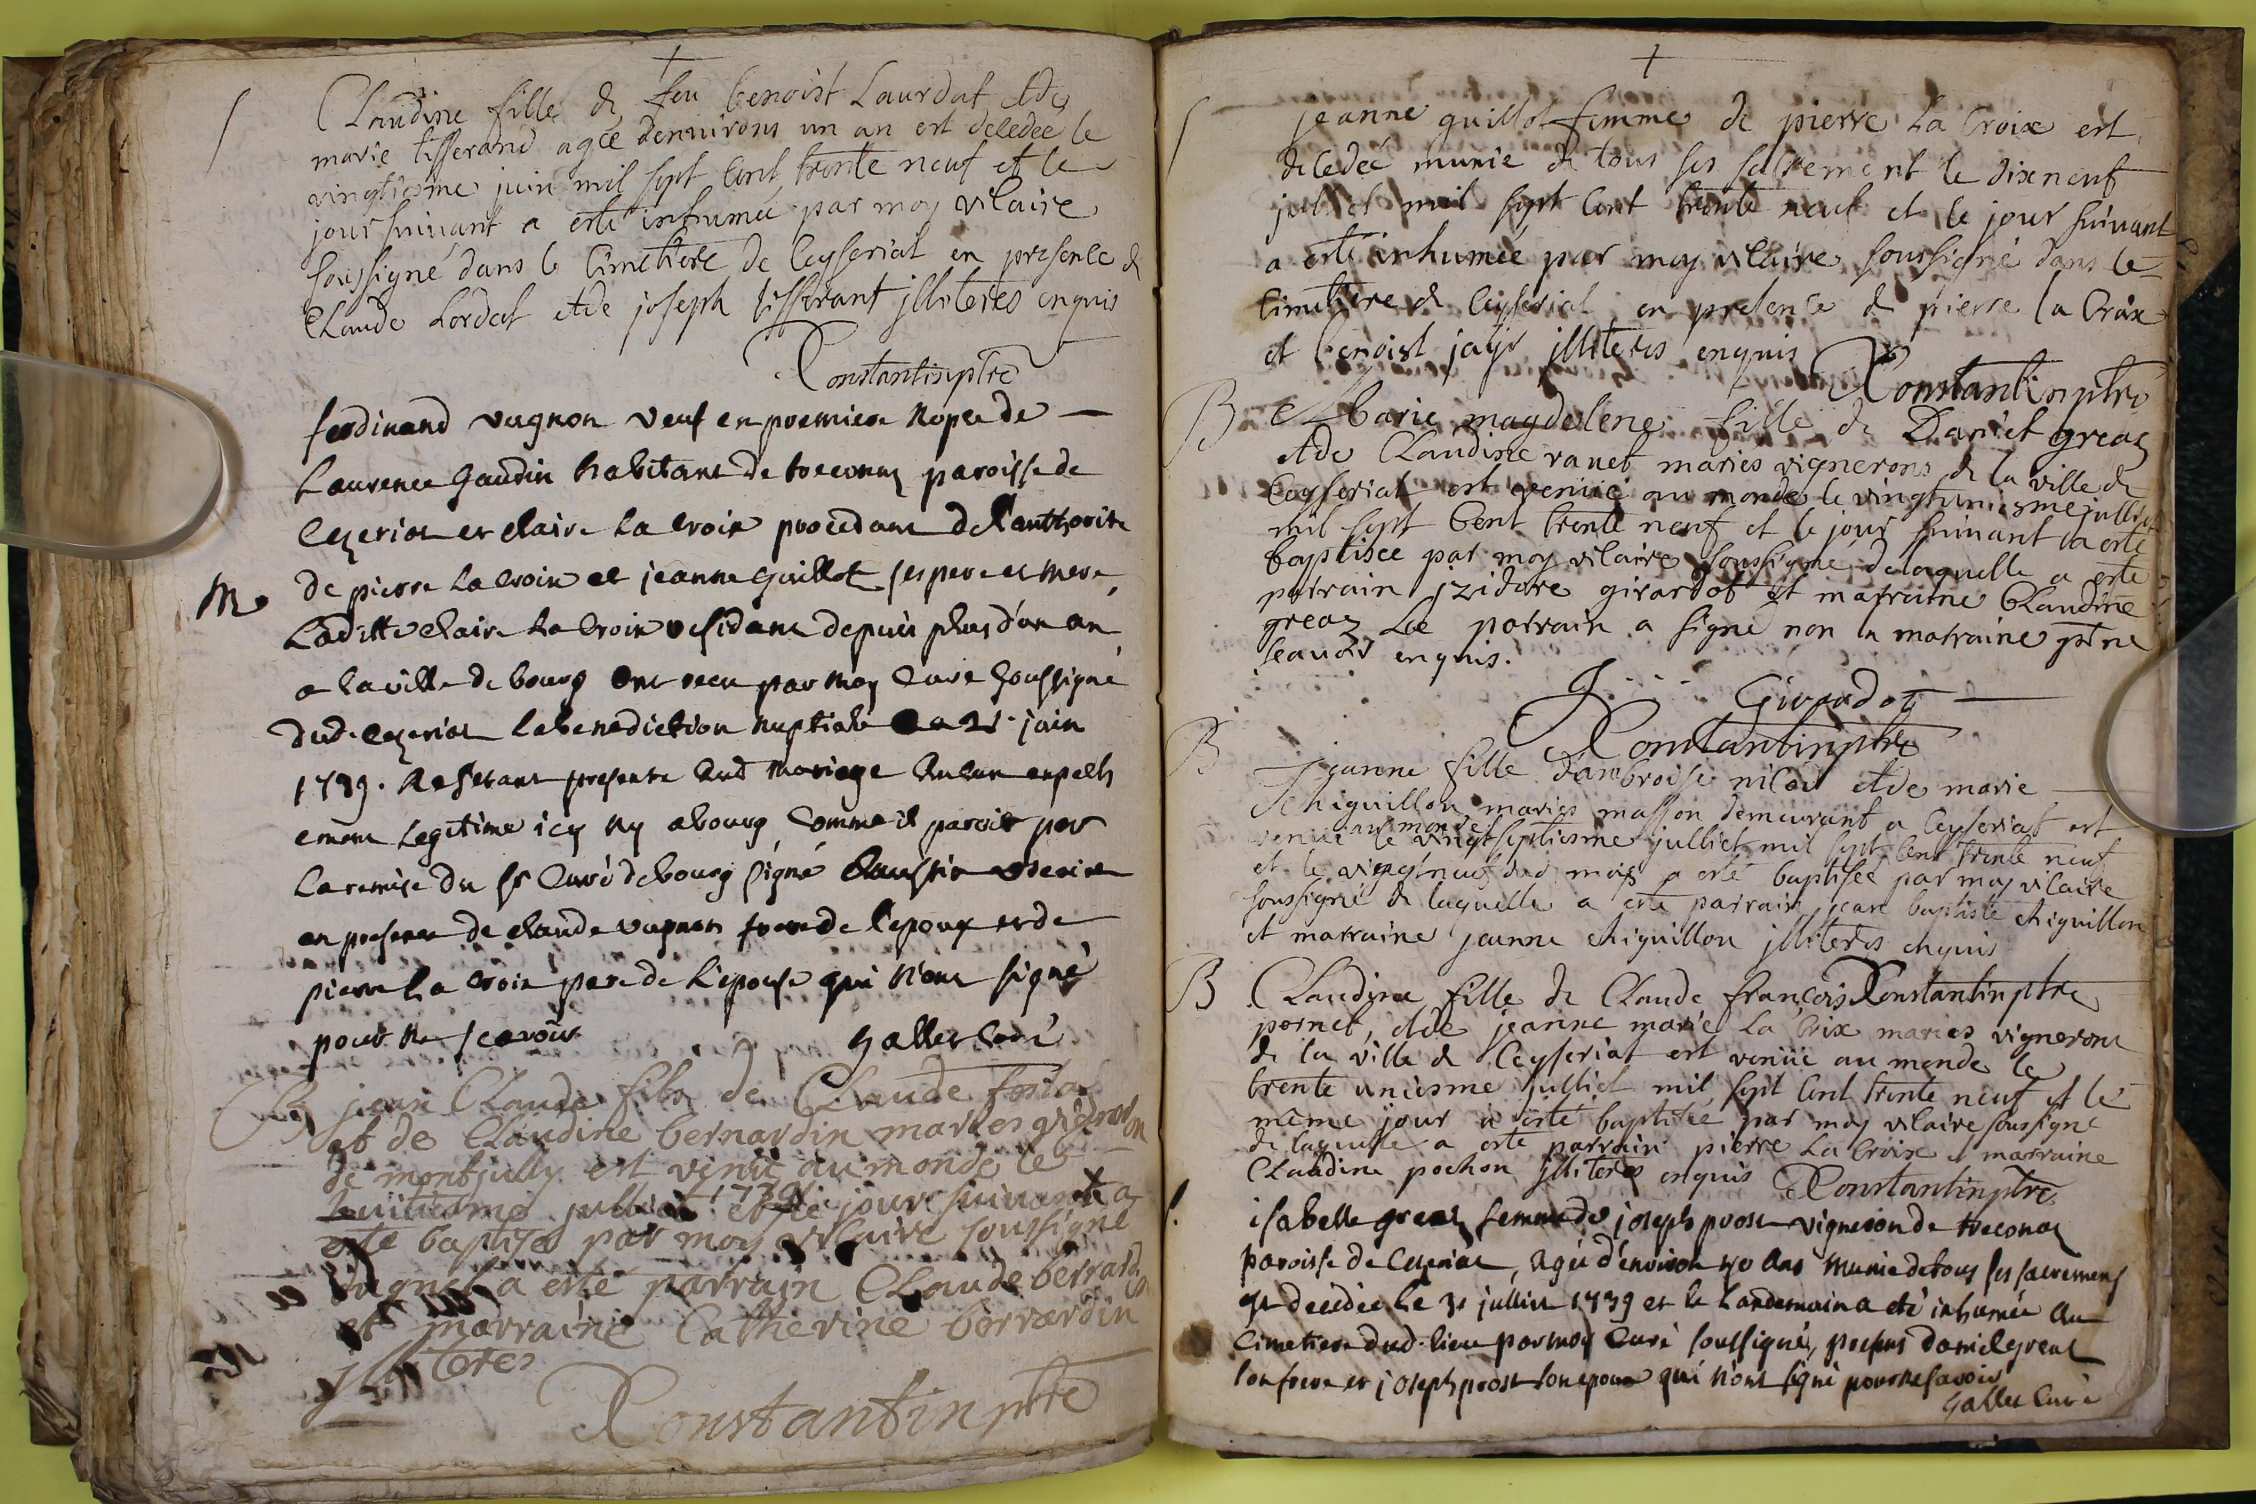 Claudine fille de feu benoist Laurdat et de
marie tisserand agée denuirons un an est decedee le
vingtiesme juin mil sept cent trente neuf et le
jour suiuant a esté inhumée par moy vicaire
soussigné dans le cimetiere de Ceyseriat en presence de
Claude Lordat et de joseph tisserant jlliteres enquis
Constantin ptre
ferdinand vugnon veuf en premiere nopce de
Laurence Gaudin habitant de treconnas paroisse de
Cezeriat et claire La croix procedant de l'authorité
M de pierre La croix et jeanne Guillot ses pere et mere
Laditte claire La Croix residant depuis plus d'un an
a la ville de bourg ont recu par moy Curé soussigné
dud. Cezeriat la benediction nuptiale le 21 juin
1739. Ne s'etant presenté aud mariage Aucun empech
ement Legitime icy ny abourg Comme il paroit par
la remise du sr Curé de bourg signé
en presence de claude vugnon frere de l'epoux et de
pierre La croix pere de L'epouse qui n'ont signé
pour ne scavoir Gallet Curé
B jean Claude fils de Claude
et de Claudine bernardin mariés vigneron
de montjully est venu au monde le
huitiesme julliet 1739 et le jour suiuant a
esté baptisé par moy vicaire soussigné
duquel a esté parrain Claude bernardin
et marraine Catherine bernardin
jlliteres
Constantin ptre
jeanne guillot femme de pierre La Croix est
decedeé munie de tous ses sacrement le dixneuf
juliet mil sept cent trente neuf et le jour suiuant
a esté inhumée par moy vicaire soussigné dans le
cimetiere de Ceyseriat en presence de pierre la Croix
et benoist jayr jlliteres enquis
Constantin ptre
B Marie magdelene fille de Daniel greaz
et de Claudine ranet mariés vignerons de la ville de
Ceyseriat est venüe au monde le vingtuniesme julliet
mil sept cent trente neuf et le jour suiuant a esté
baptisee par moy vicaire soussigné de laquelle a esté
parrain jzidore girardot et marraine Claudine
greaz Le parrain a signé non la marraine pr ne
scauoir enquis.
J Girardot
Constantin ptre
B Jeanne fille d'ambroise nicod et de marie
chiguillon mariés masson demeurant a Ceyseriat est
venüe au monde le vingt septiesme julliet mil sept cent trente neuf
et le vingtneuf dud mois a esté baptisée par moy vicaire
soussigné de laquelle a esté parrain jean baptiste chiguillon
et marraine jeanne chiguillon jlliteres enquis
Constantin ptre
B Claudine fille de Claude françois
pornet, et de jeanne marie La Croix mariés vignerons
de la ville de Ceyseriat est venüe au monde le
trente uniesme julliet mil sept cent trente neuf et le
même jour a esté baptisée par moy vicaire soussigné
de laquelle a esté parrain pierre La Croix et marraine
Claudine pochon jlliteres enquis Constantin ptre
isabelle greaz femme de joseph prost vigneron de treconas
paroisse de Cezeriat, agée d'environ 40 ans munie de tous ses sacremens
est decedée le 31 julliet 1739 et le Landemain a eté inhumée au
Cimetiere dud. lieu par moy Curé soussigné, presens daniel greaz
son frere et joseph prost son epoux qui n'ont signé pour ne savoir
Gallet Curé